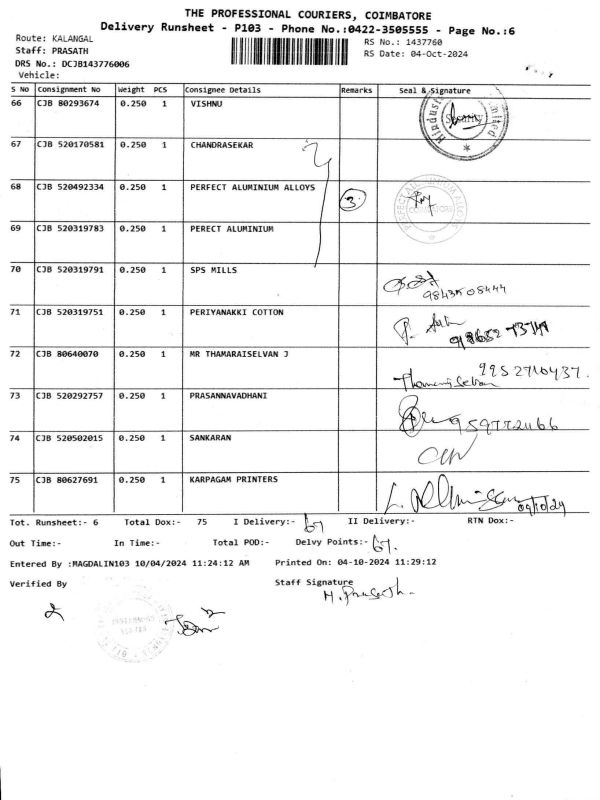 THE PROFESSIONAL COURIERS, COIMBATORE
Delivery Runsheet - P103 - Phone No.:0422-3505555 - Page No.:6
Route: KALANGAL
RS No.: 1437760
Staff: PRASATH
RS Date: 04-Oct-2024
DRS No.: DCJB143776006
Vehicle:
S No Consignment No Weight PCS Consignee Details Remarks Seal & Signature
66 CJB 80293674 0.250 1 VISHNU
67 CJB 520170581 0.250 1 CHANDRASEKAR
68 CJB 520492334 0.250 1 PERFECT ALUMINIUM ALLOYS 3
PERFECT ALUMINIUM ALLOYS
69 CJB 520319783 0.250 1 PERECT ALUMINIUM
70 CJB 520319791 0.250 1 SPS MILLS
9843508444
71 CJB 520319751 0.250 1 PERIYANAKKI COTTON
72 CJB 80640070 0.250 1 MR THAMARAISELVAN J
9952710437.
73 CJB 520292757 0.250 1 PRASANNAVADHANI
74 CJB 520502015 0.250 1 SANKARAN
75 CJB 80627691 0.250 1 KARPAGAM PRINTERS
Tot. Runsheet:- 6 Total Dox:- 75 I Delivery:- 67 II Delivery:- RTN Dox:-
Out Time:- In Time:- Total POD:- Delvy Points:- 67.
Entered By :MAGDALIN103 10/04/2024 11:24:12 AM Printed On: 04-10-2024 11:29:12
Verified By Staff Signature
M. Prasath.